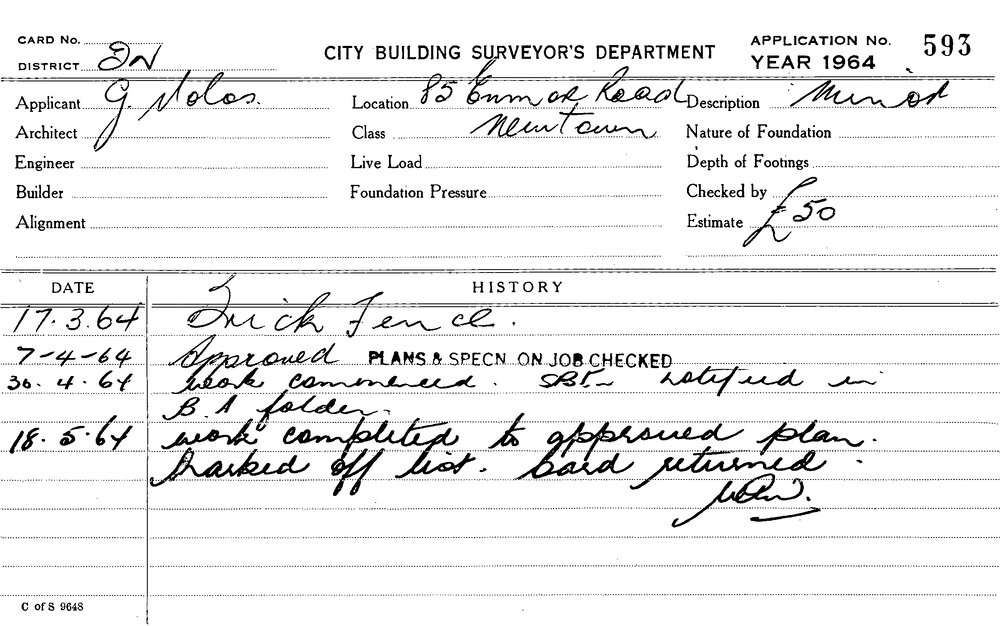 CARD No.
DISTRICT DN
CITY BUILDING SURVEYOR'S DEPARTMENT
APPLICATION No. 593
YEAR 1964
Applicant G. Nolos. Location 85 Enmore Road Description Minor
Architect Class Newtown Nature of Foundation
Engineer Live Load Depth of Footings
Builder Foundation Pressure Checked by
Alignment Estimate £50
DATE HISTORY
17.3.64 Brick Fence.
7-4-64 Approved PLANS & SPECN ON JOB CHECKED
30.4.64 work commenced. notified in
B A folder.
18.5.64 work completed to approved plan.
Marked off list. Card returned.
C of S 9648